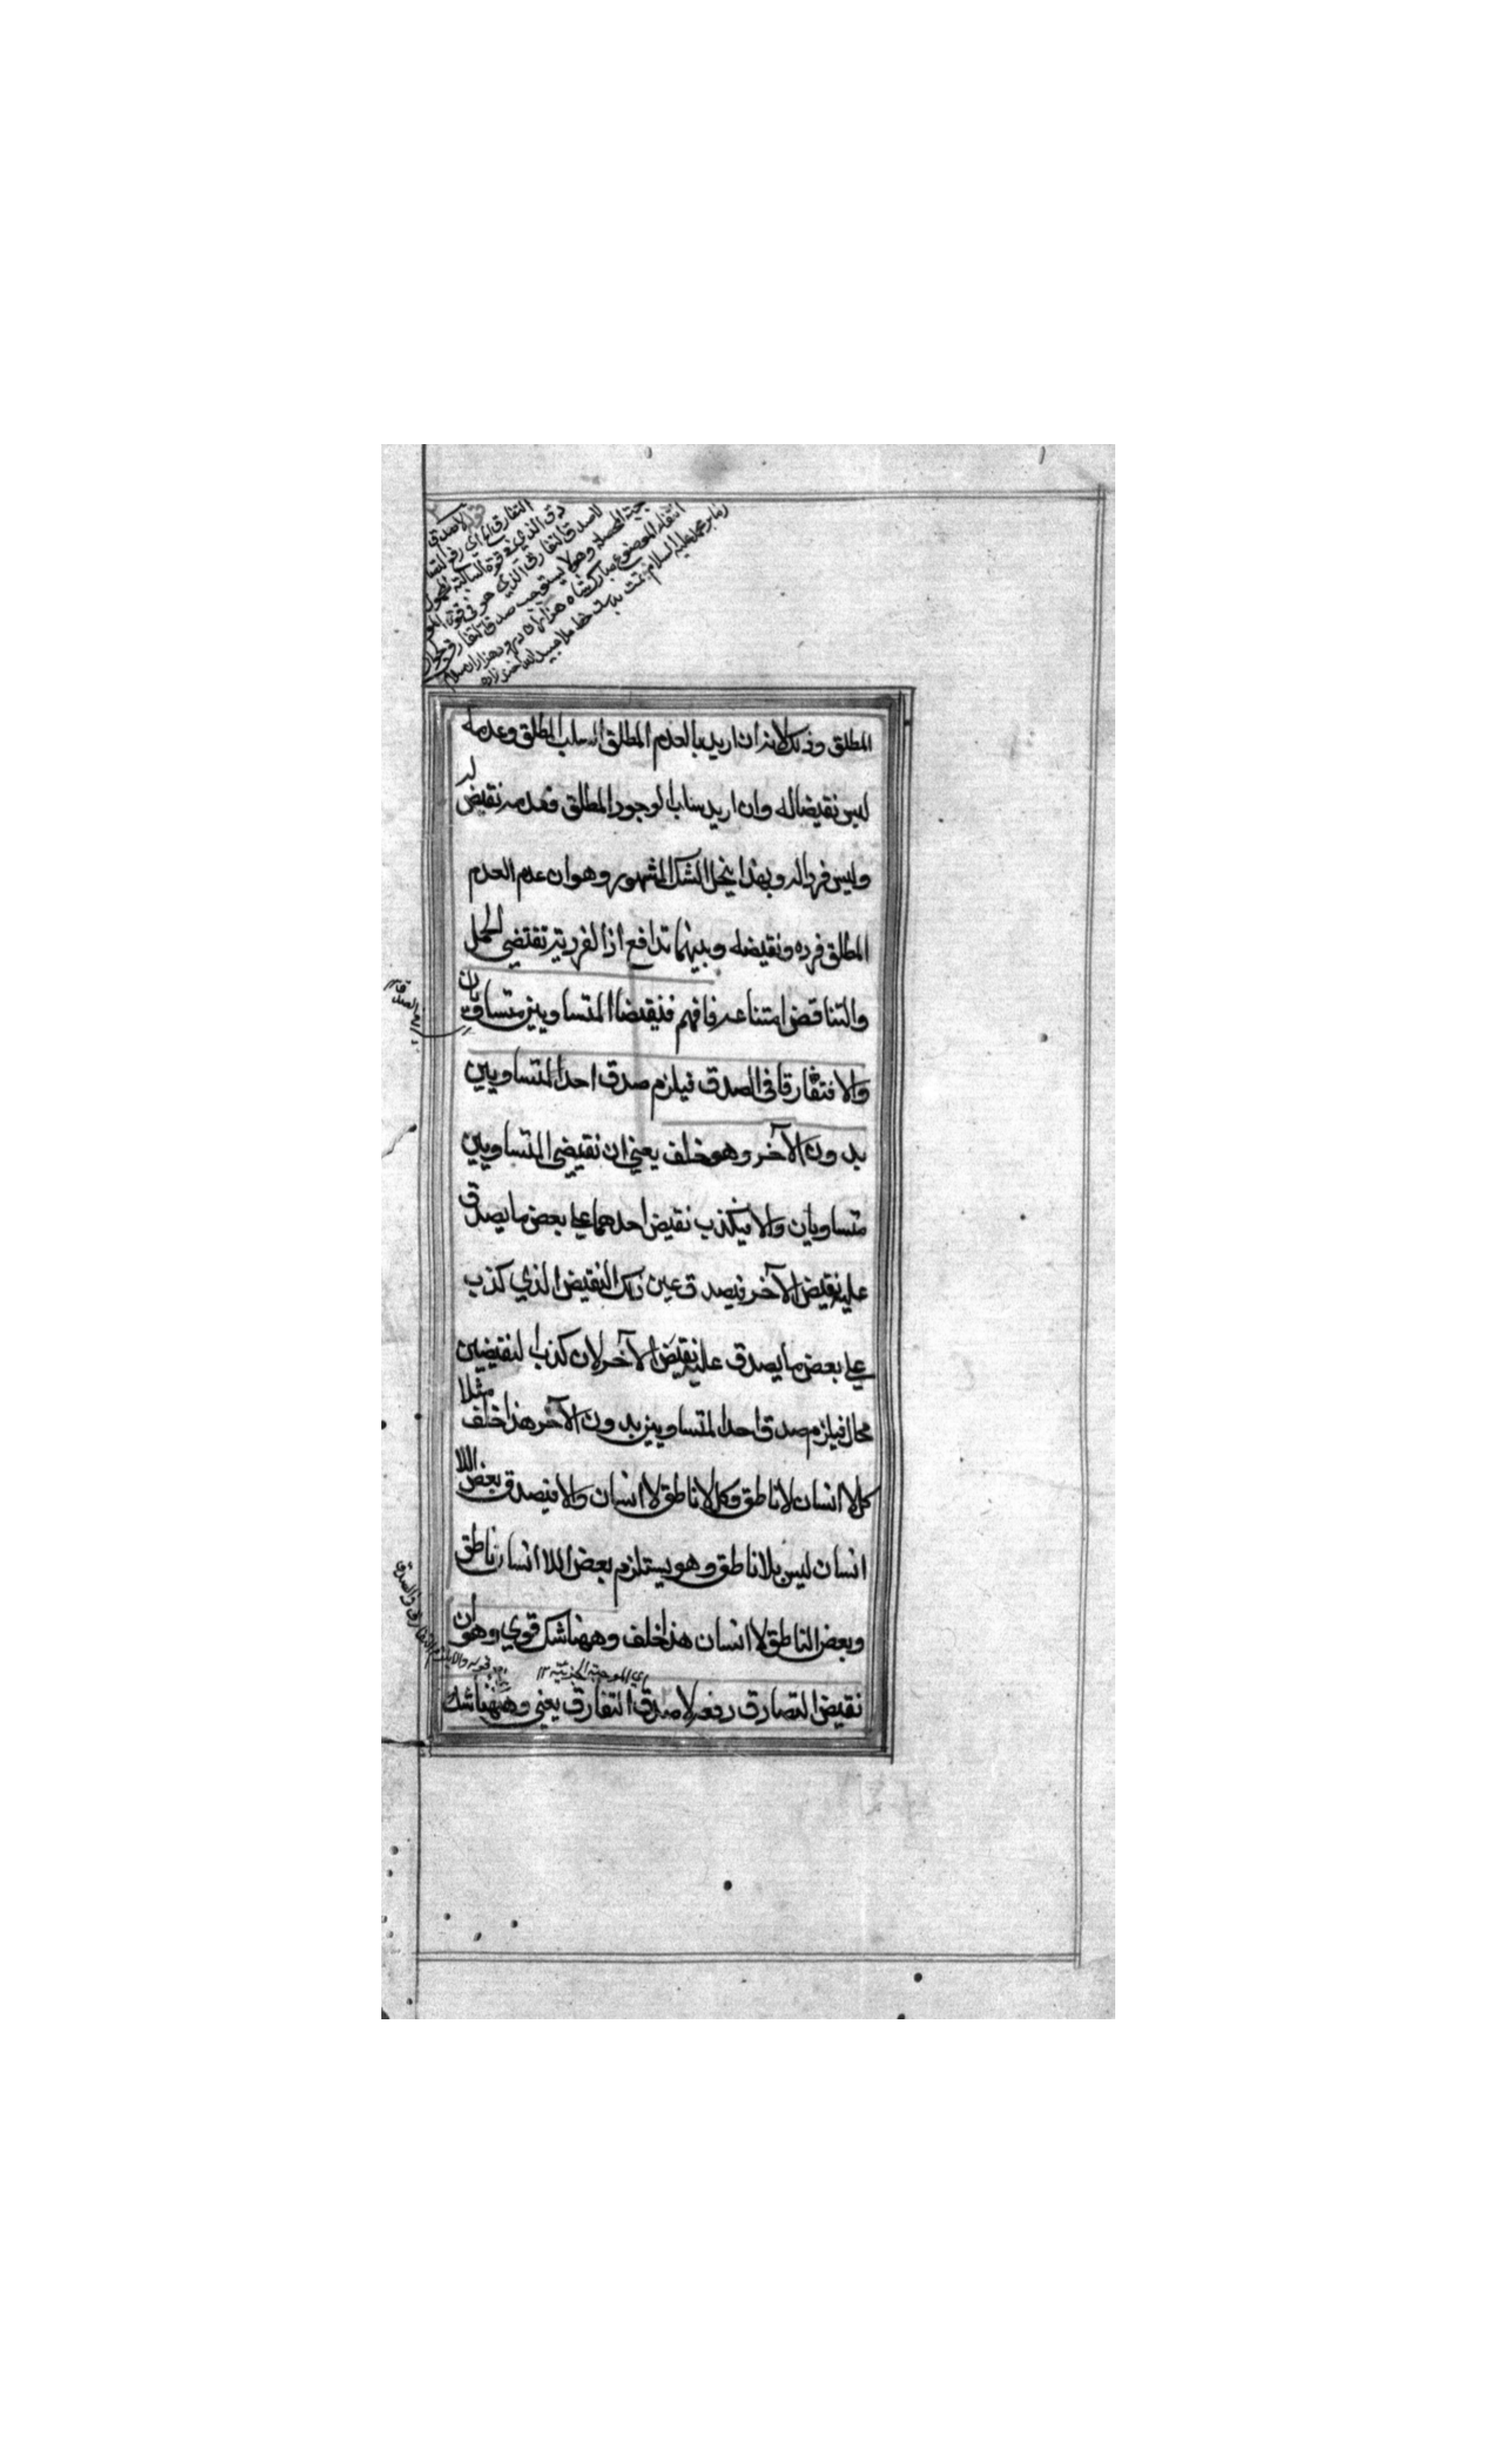 قوله لا صدق
التفارق الخ اي رفع التصا
دق الذي في قوة السالبة المحمول
لا صدق التفارق الذي هو في قوة المو
جبة المحصلة وهو لا يستوجب صدق التفارق لجواز
انتفاء الموضوع
المطلق وذلك لانه ان اريد بالعدم المطلق السلب المطلق وعدمه
ليس نقيضا له وان اريد سلب الوجود المطلق فعدمه نقيض له
وليس فردا له وبهذا ينحل الشك المشهور وهو ان عدم العدم
المطلق فرده ونقيضه وبينهما تدافع اذ الفردية تقتضي الحمل
والتناقض امتناعه فافهم فنقيضا المتساويين متساويان
والا فتفارقا في الصدق فيلزم صدق احد المتساويين
بدون الآخر وهو خلف يعني ان نقيضي المتساويين
متساويان والا فيكذب نقيض احدهما على بعض ما يصدق
عليه نقيض الآخر فيصدق عين ذلك النقيض الذي كذب
على بعض ما يصدق عليه نقيض الآخر لان كذب النقيضين
محال فيلزم صدق احد المتساويين بدون الآخر هذا خلف مثلا
كل لا انسان لا ناطق وكل لا ناطق لا انسان والا فيصدق بعض اللا
انسان ليس بلا ناطق وهو يستلزم بعض اللا انسان ناطق
وبعض الناطق لا انسان هذا خلف وههنا شك قوي وهو ان
اي الموجبة الجزئية ١٢
نقيض التصادق رفعه لا صدق التفارق يعني وههنا شك